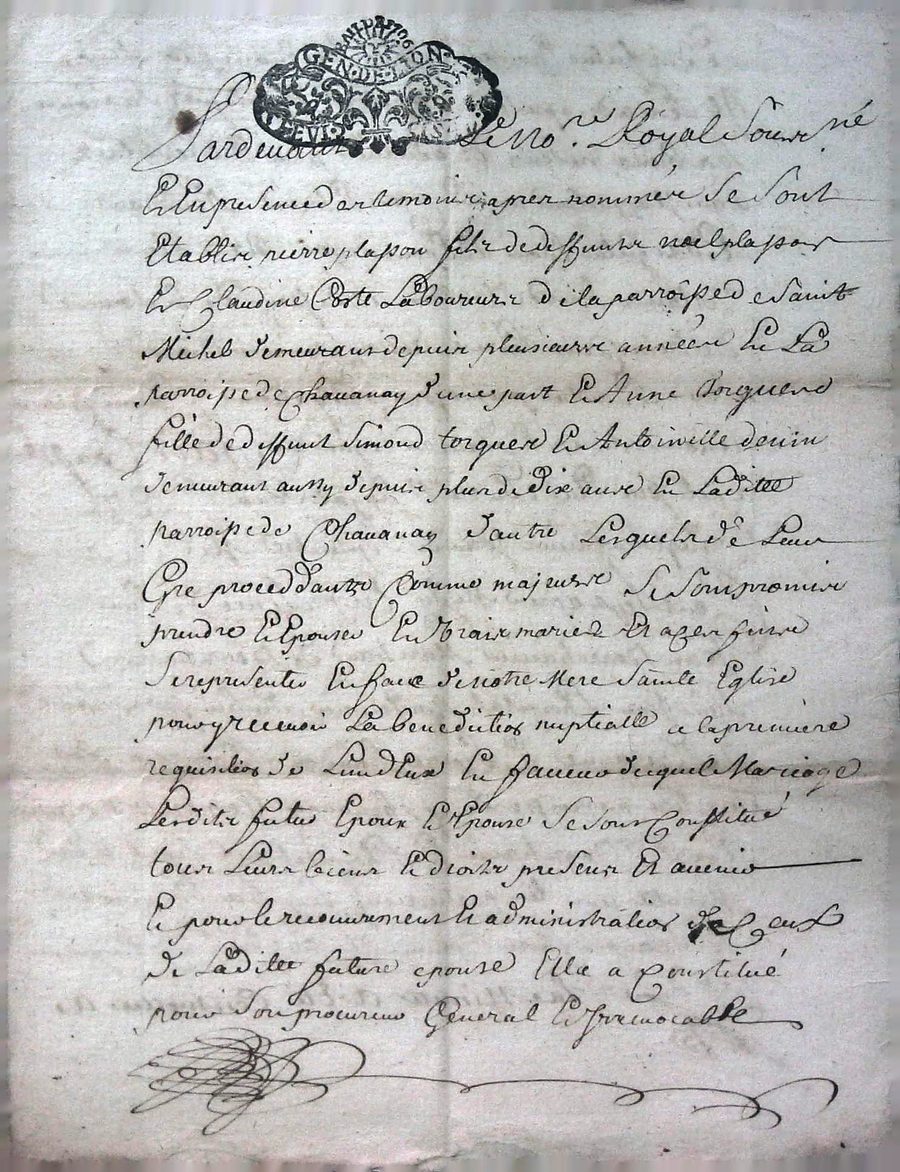 BAIL DE 1706
GEN · DE · LION
Pardevant Le No.re Royal Soub.né
Et En presence des temoins apres nommés Se Sont
Etablis pierre plasson filz de deffuncts noel plasson
Et Claudine Coste Laboureurs de la parroisse de Saint
Michel demeurant depuis plusieurs années En La
parroisse de Chauanay d'une part Et Anne torguere
fille de deffunt Simond torguere Et Antoinette
demeurant aussy depuis plus de Dix ans En Laditte
parroisse de Chauanay d'autre Lesquels de Leur
Gre proceddants Comme majeurs Se Sont promis
prendre Et Epouser En vrais mariez Et a ces fins
Se representer En face de notre Mere Sainte Eglise
pour y receuoir La benediction nuptialle a la premiere
requisition de L'un d'Eux En faueur duquel Mariage
Lesdits futur Epoux Et Epouse Se Sont Constitué
tous Leurs biens Et droits presens Et auenir
Et pour le recouurement Et administration de Ceux
de Laditte future epouse Elle a Constitué
pour Son procureur General Et Irreuocable